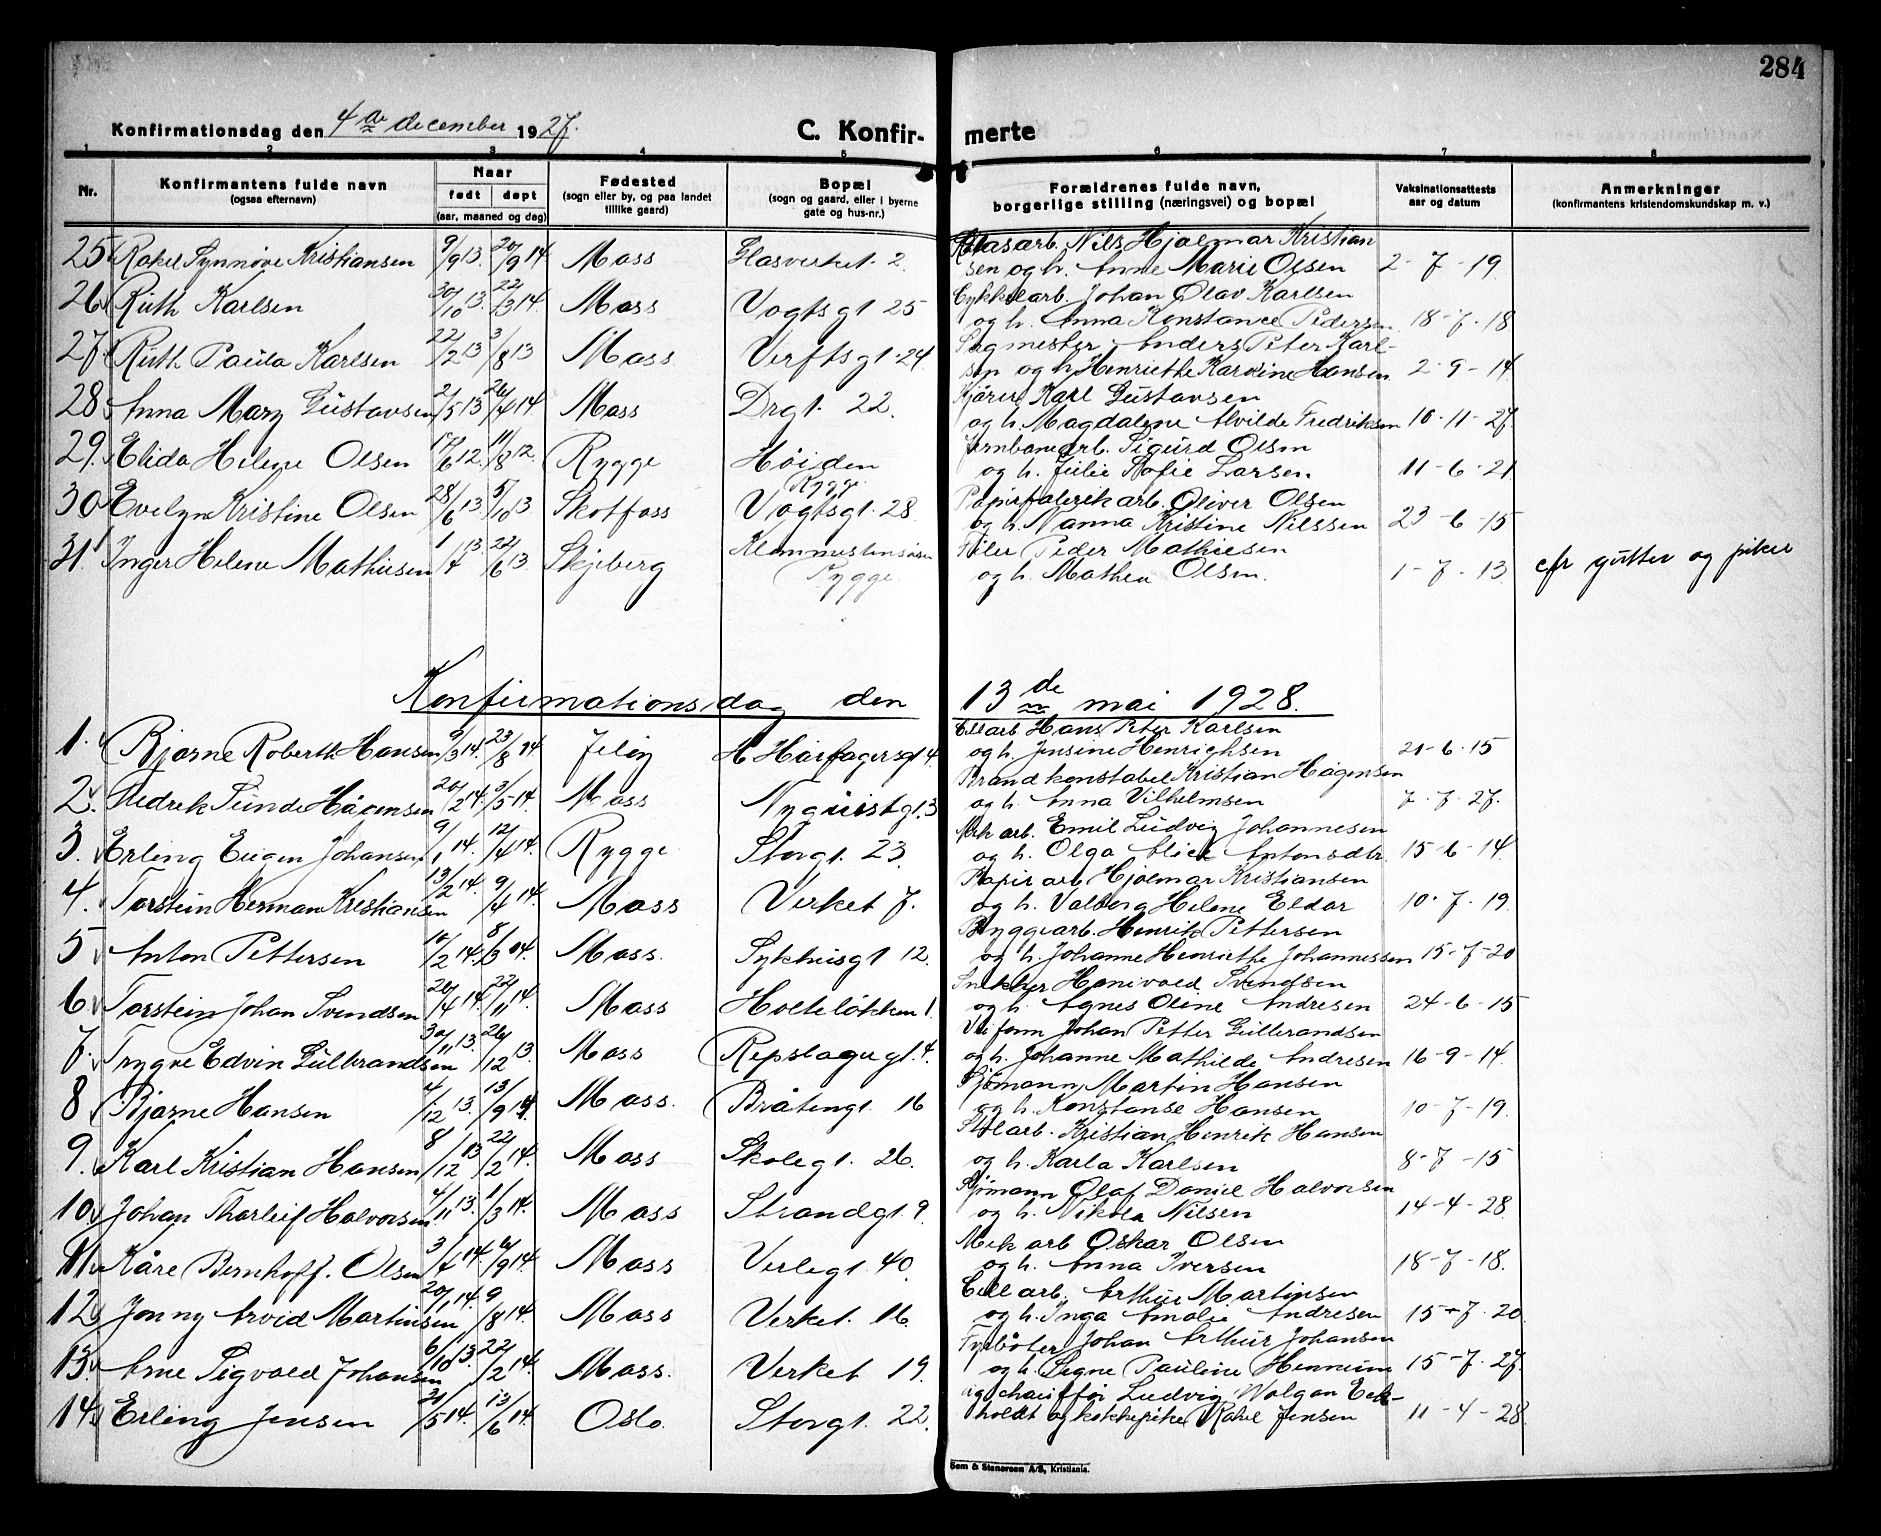 284
Konfirmationsdag den 4de december 1927. C. Konfirmerte
1 2 3 4 5 6 7 8
Nr. Konfirmantens fulde navn (ogsaa efternavn) Naar født døpt (aar, maaned og dag) Fødested (sogn eller by, og paa landet tillike gaard) Bopæl (sogn og gaard, eller i byerne gate og hus-nr.) Forældrenes fulde navn, borgerlige stilling (næringsvei) og bopæl Vaksinationsattests aar og datum Anmerkninger (konfirmantens kristendomskundskap m. v.)
25 Rakel Synnøve Kristiansen 9/9 13. 20/9 14 Moss Glasverket 2. Glasarb. Nils Hjalmar Kristian
sen og h. Anne Marie Olsen 2-7-19
26 Ruth Karlsen 30/10 13. 22/3 14. Moss Vogtsgt 25 Cykkelarb. Johan Olav Karlsen
og h. Anna Konstance Pedersen 18-7-18
27. Ruth Paula Karlsen 22/2 13 3/8 13 Moss Verftsgt. 24 Sagmester Anders Peter Karl-
sen og h. Henriethe Karoline Hansen 2-9-14
28 Anna Mary Gustavsen 2/5 13 26/4 14. Moss Drgt. 22. Kjører Karl Gustavsen
og h. Magdalene Alvilde Fredriksen 10-11-27
29. Elida Helene Olsen 17/6 12. 11/8 12. Rygge Høiden Jernbanearb. Sigurd Olsen
Rygge og h. Julie Sofie Larsen. 11-6-21
30 Evelyn Kristine Olsen 28/6 13. 5/10 13 Skotfoss Vogtsgt. 28 Papirfabrikarb. Oliver Olsen
og h. Nanna Kristine Nilssen 23-6-15
31. Inger Helene Mathiesen 1/4 13. 22/6 13 Skjeberg Filer Peder Mathiesen
Rygge og h. Mathea Olsen. 1-7-13 cfr gutter og piker
Konfirmationsdag den 13de mai 1928.
1. Bjarne Roberth Hansen 9/3 14. 23/8 14 Jeløy H Hårfagersgt 4. Cellarb Hans Peter Karlsen
og h. Jensine Henrichsen 21-6-15
2. Sunde Hågensen 20/2 14. 3/5 14. Moss Nyquistgt. 3 Brandkonstabel Kristian Hågensen
og h. Anna Vilhelmsen 7-7-27.
3. Erling Eugen Johansen 9/1 14. 12/4 14. Rygge Storgt. 23. Mek arb. Emil Ludvig Johannesen
og h. Olga Alice Antonsdtr. 15-6-14.
4. Torstein Herman Kristiansen 13/2 14. 9/4 14. Moss Verket 7. Papir arb Hjalmar Kristiansen
og h. Valborg Helene Eldar 10-7-19.
5 Anton Pettersen 10/2 14. 8/3 14. Moss. Sykhusgt 12. Byggearb. Henrik Pettersen
og h. Johanne Henriethe Johannessen 15-7-20
6 Torstein Johan Svendsen 20/4 14. 22/11 14. Moss Holteløkken 1. Snekker Hanivald Svendsen
og h. Agnes Oline Andresen 24-6-15
7. Trygve Edvin Gulbrandsen 30/11 13. 26/12 13. Moss Repslagergt. 4. Veiform Johan Petter Gulbrandsen
og h. Johanne Mathilde Andresen 16-9-14.
8 Bjarne Hansen 4/12 13. 13/9 14. Moss. Bråtengt. 16 Sjømann Martin Hansen
og h. Konstanse Hansen 10-7-19.
9. Karl Kristian Hansen 8/12 13 22/2 14. Moss Skolegt. 26. Stolarb. Kristian Henrik Hansen
og h. Karla Karlsen 8-7-15
10. Johan Tharleif Halvorsen 4/11 13. 1/3 14. Moss Strandgt. 9. Sjømann Olaf Daniel Halvorsen
og h. Nikola Nilsen 14-4-28.
11. Kåre Bernhoff. Olsen 3/4 14. 6/9 14. Moss Verlegt. 40. Mek arb Oskar Olsen
og h. Anna Iversen 18-7-18.
12. Jonny Arvid Martinsen 20/1 14. 9/8 14. Moss Verket. 16. Cellarb. Arthur Martinsen
og h. Inga Amalie Andresen 15-7-20.
13. Arne Sigvald Johansen 6/10 13. 22/2 14. Moss. Verket 19. Fyrbøter Johan Arthur Johansen
og h. Signe Pauline Hennum 15-7-27.
14. Erling Jensen 21/5 14. 13/6 14. Oslo. Storgt. 22. Ludvig Walgan Eck-
holdt og kokkepike Rakel Jensen 11-4-28.
Sem & Stenersen A/S, Kristiania.